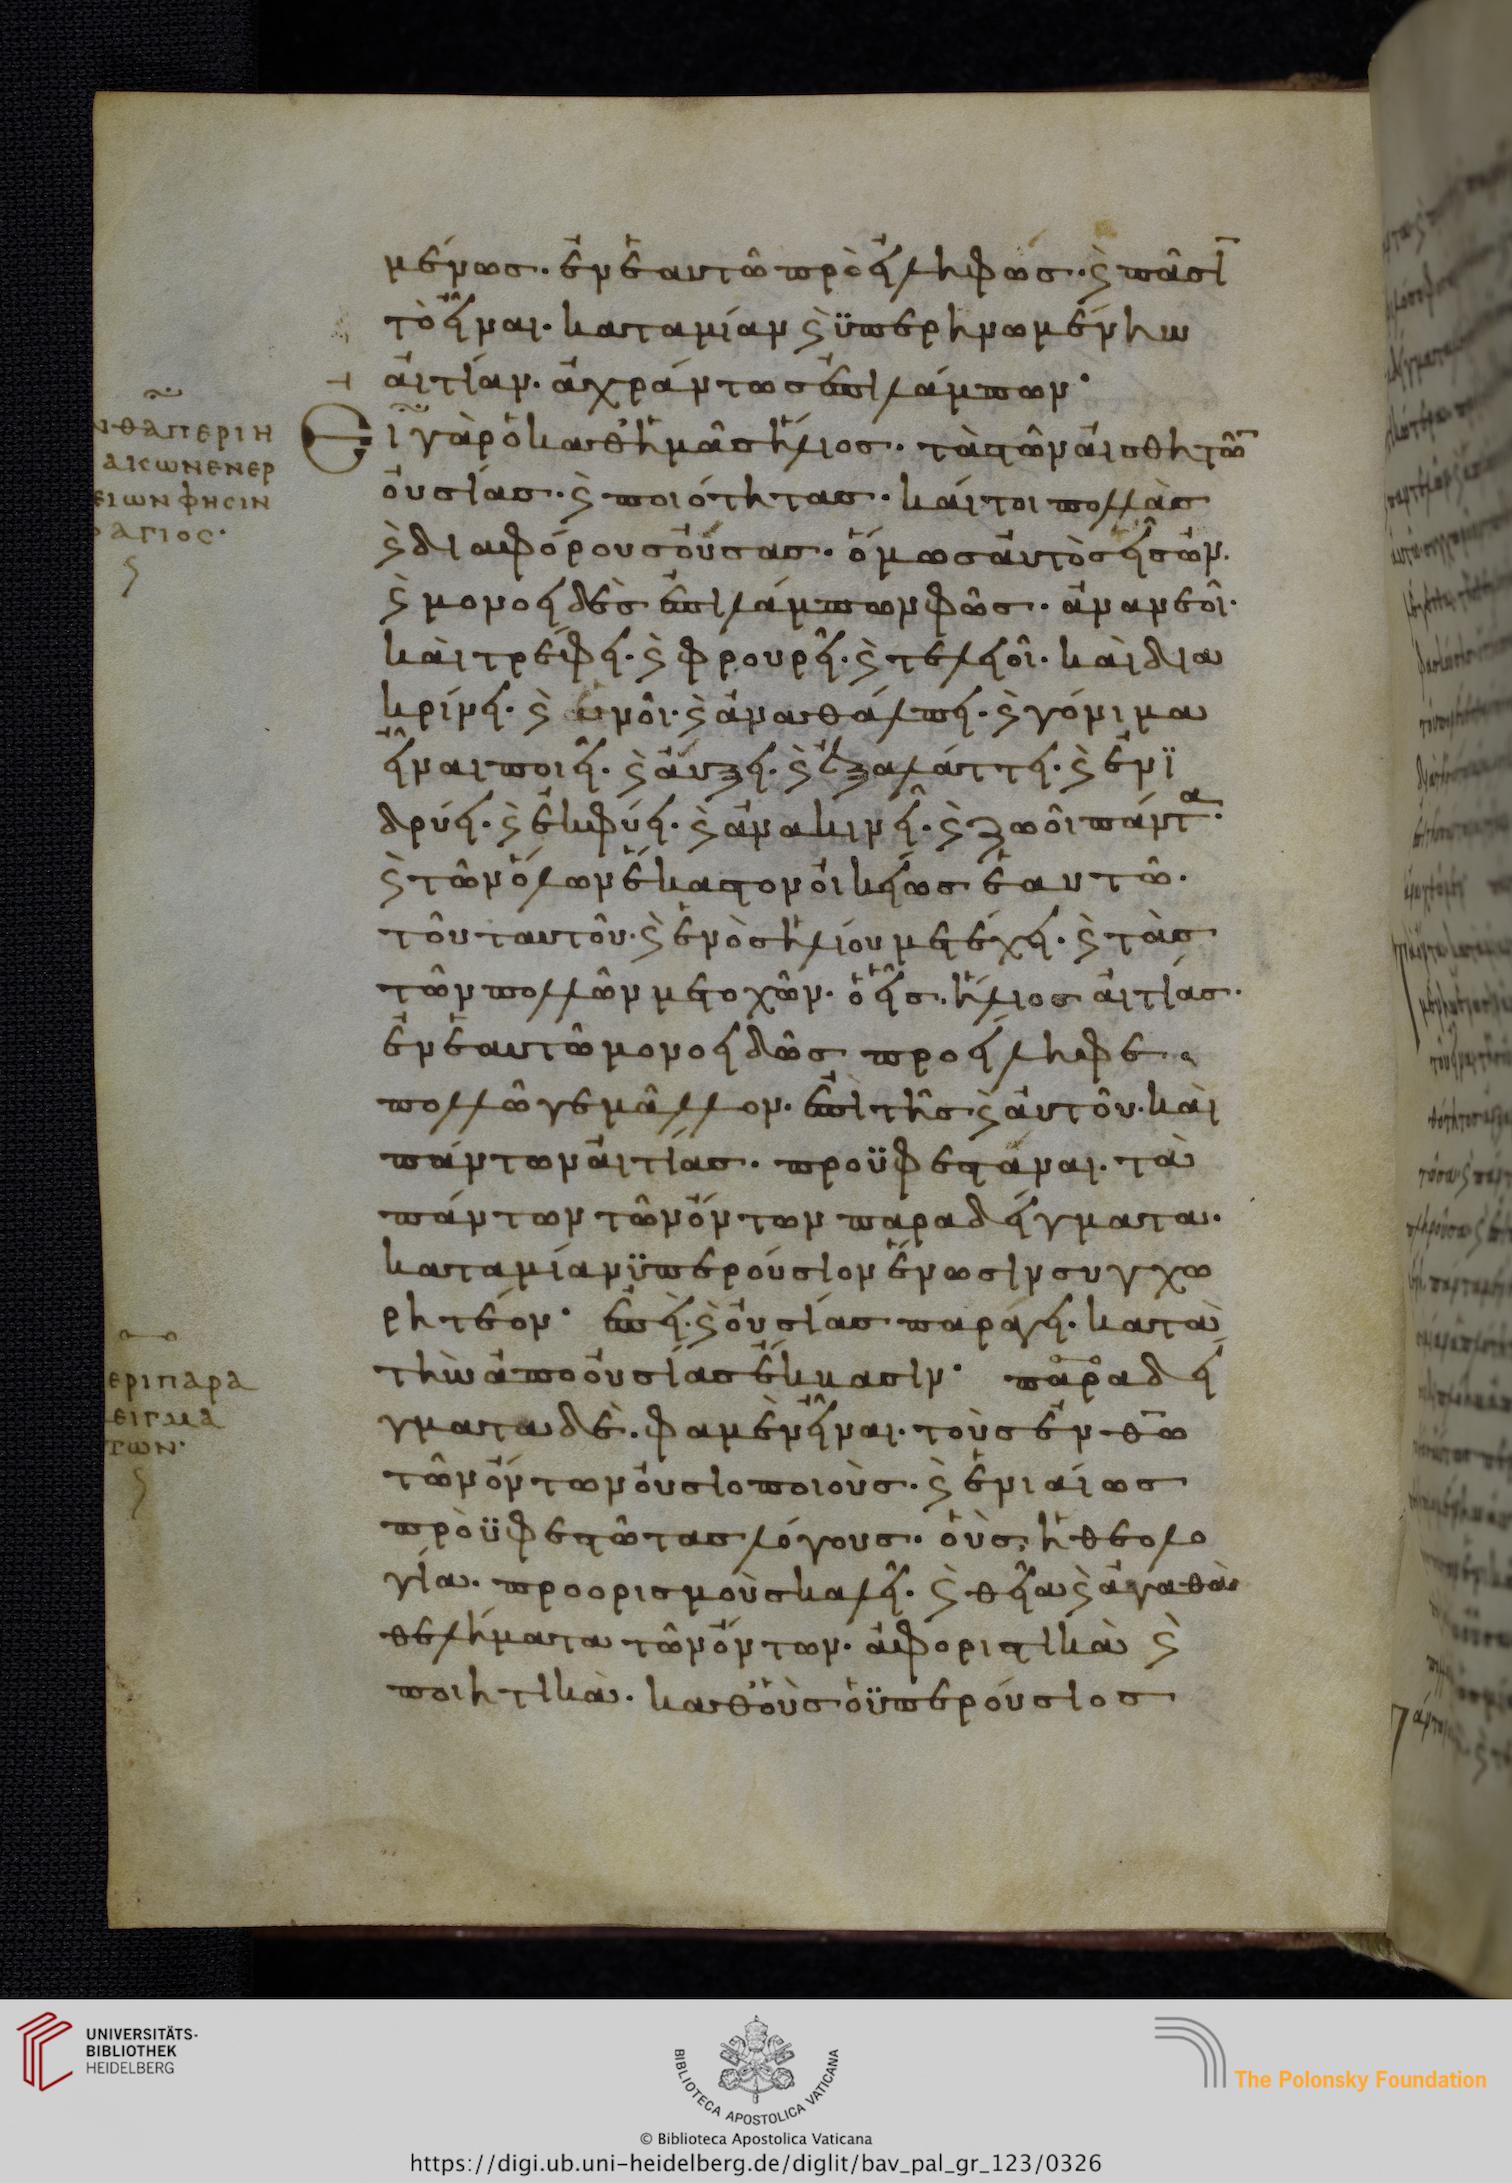 μένως. ἐν ἑαυτῶ προείληφώς. ϗ πᾶσῑ
τὸ εἶναι. κατα μίαν ϗ ϋπερηνωμένην
αἰτίαν. ἀχράντως ἐπιλάμπων·
Εἰ γὰρ ὁ καθ' ἡμᾶς ἥλιος. τὰ τῶν αἰσθητῶ̄
οὐσίας. ϗ ποιότητας. καίτοι πολλὰς
ϗ διαφόρους οὔσας. ὅμως αὐτὸς εἷς ὢν.
ϗ μονοειδὲς ἐπιλάμπων φῶς. ἀνανεοῖ.
καὶ τρέφει. ϗ φρουρεῖ. ϗ τελειοῖ. καὶ δια
κρίνει. ϗ ἑνοῖ. ϗ ἀναθάλπει. ϗ γόνιμα
εἶναι ποιεῖ. ϗ ἀύξει. ϗ ἐξαλάττει. ϗ ἐνϊ
δρύει. ϗ ἐκφύει. ϗ ἀνακινεῖ. ϗ ζωοῖ πάντα.
ϗ τῶν ὅλων ἕκαστον οἰκείως ἑαυτῶ.
τοῦ ταυτοῦ. ϗ ἑνὸς ἡλίου μετέχει. ϗ τὰς
τῶν πολλῶν μετοχῶν. ὁ εἷς ἥλιος αἰτίας.
ἐν ἑαυτῶ μονοειδῶς προείληφε.
πολλῶ γε μᾶλλον. ἐπὶ τῆς ϗ αὐτοῦ. καὶ
πάντων αἰτίας. προϋφεστάναι. τὰ
πάντων τῶν ὄντων παραδείγματα.
κατα μίαν ϋπερούσιον ἕνωσιν συγχω
ρητέον· ἐπεὶ. ϗ οὐσίας παράγει. κατὰ
τὴν ἀπο οὐσίας ἔκβασιν· παραδεί
γματα δὲ. φαμὲν εἶναι. τοὺς ἐν θ̄ω
τῶν ὄντων οὐσιοποιοὺς. ϗ ἑνιαίως
προϋφεστῶτας λόγους. οὓς, ἡ θεολο
γία. προορισμοὺς καλεῖ. ϗ θεῖα ϗ ἀγαθὰ
θελήματα τῶν ὄντων. ἀφοριστικὰ ϗ
ποιητικὰ. καθ' οὓς ὁ ϋπερούσιος
ΝΘΑ ΠΕΡΙ Η
ΑΚΩΝ ΕΝΕΡ
ΕΙΩΝ ΦΗCΙΝ
Ο ΑΓΙΟC·
ΕΡΙ ΠΑΡΑ
ΕΙΓΜΑ
ΤΩΝ·
UNIVERSITÄTS-
BIBLIOTHEK
HEIDELBERG
BIBLIOTECA APOSTOLICA VATICANA
The Polonsky Foundation
© Biblioteca Apostolica Vaticana
https://digi.ub.uni-heidelberg.de/diglit/bav_pal_gr_123/0326